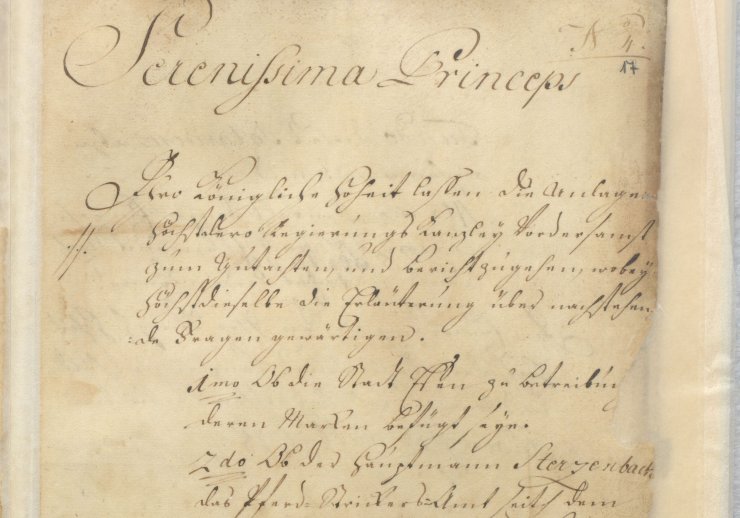 N 4.
17
Serenissima Princeps
Ihro Königliche Hoheit lassen die Anlage
höchstdero Regierungs Kanzley vordersamst
zum Gutachten, und bericht zugehen, wobey
höchstdieselbe die Erläuterung über nachstehen
:de Fragen gewärtigen.
1mo Ob die Stadt Essen zu betreibung
deren Marken befügt seye.
2do Ob der Hauptmann Sterzenbach
das Pferd-Strickers-Amt seith dem